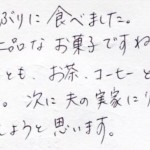 ぶりに食べました。
上品なお菓子ですね
とも、お茶、コーヒーと
。次に夫の実家に
しようと思います。